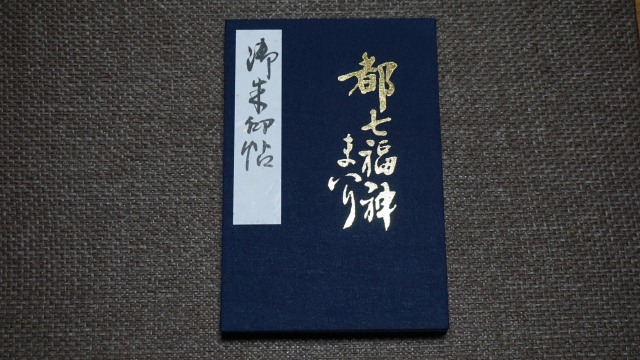 都七福神
まいり
御朱印帖